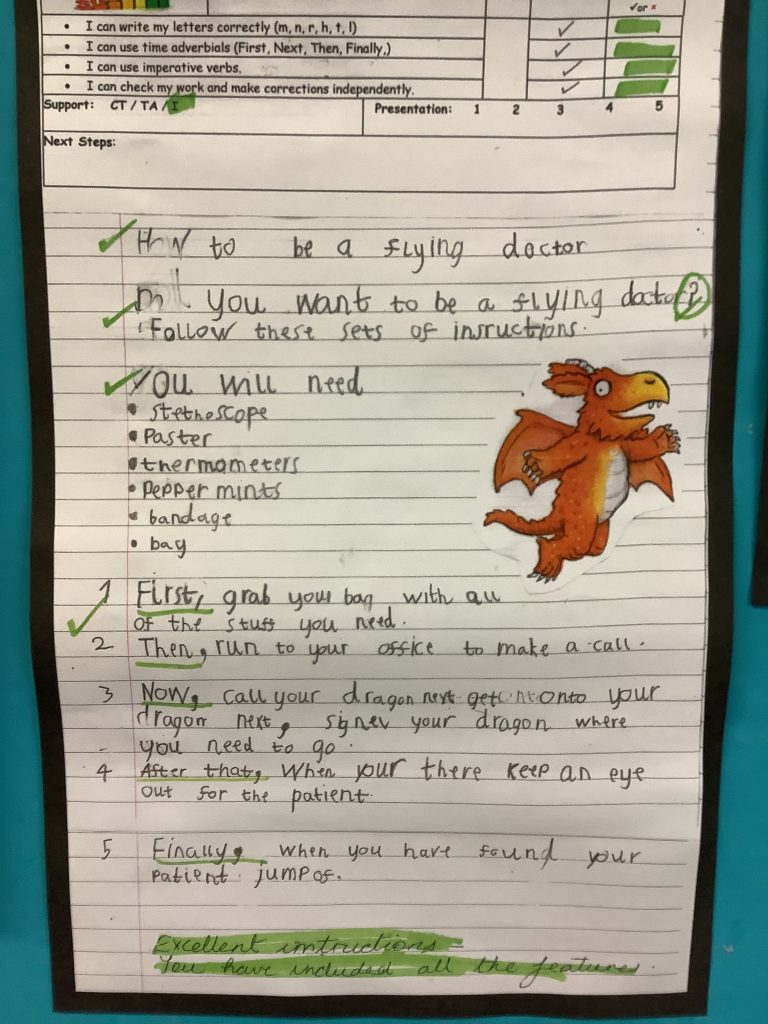 ✓or x
• I can write my letters correctly (m, n, r, h, t, l)
• I can use time adverbials (First, Next, Then, Finally,)
• I can use imperative verbs.
• I can check my work and make corrections independently.
Support: CT / TA / I Presentation: 1 2 3 4 5
Next Steps:
How to be a flying doctor
you want to be a flying doctor?
Follow these sets of insructions.
You will need
• stethoscope
• Paster
• thermometers
• Pepper mints
• bandage
• bag
1 First, grab your bag with all
of the stuff you need.
2 Then, run to your office to make a call.
3 Now, call your dragon next get onto your
dragon next, signev your dragon where
you need to go.
4 After that, When your there keep an eye
out for the patient.
5 Finally, when you have found your
patient jump of.
Excellent instructions
You have included all the features.